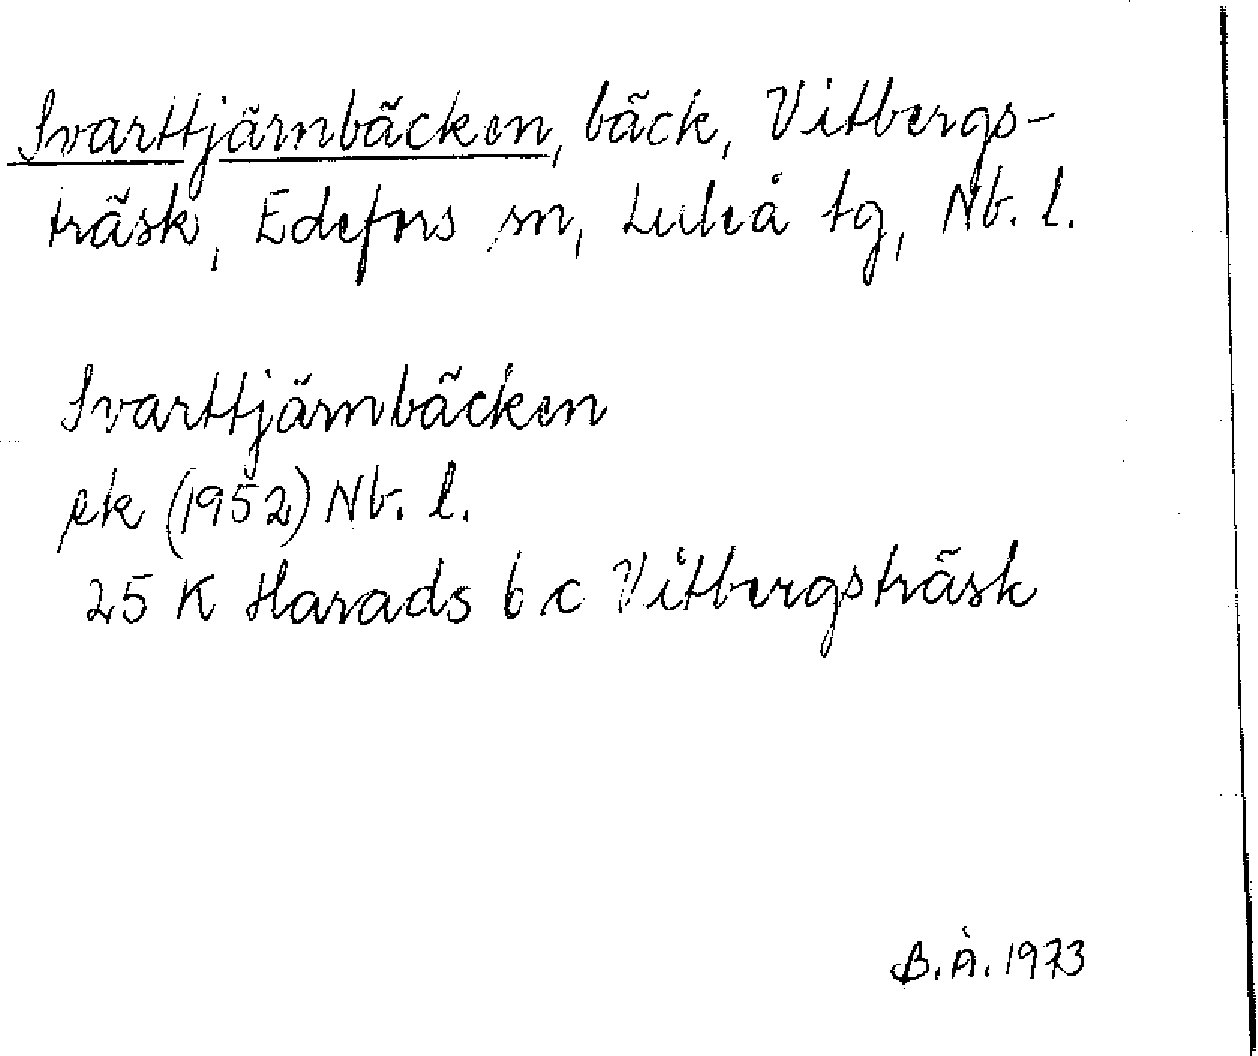 Svarttjärnbäcken, bäck, Vitbergs-
träsk, Edefors sn, Luleå tg, Nb. l.
Svarttjärnbäcken
ek (1952) Nb. l.
25 K Harads b c Vitbergsträsk
B.Å. 1973